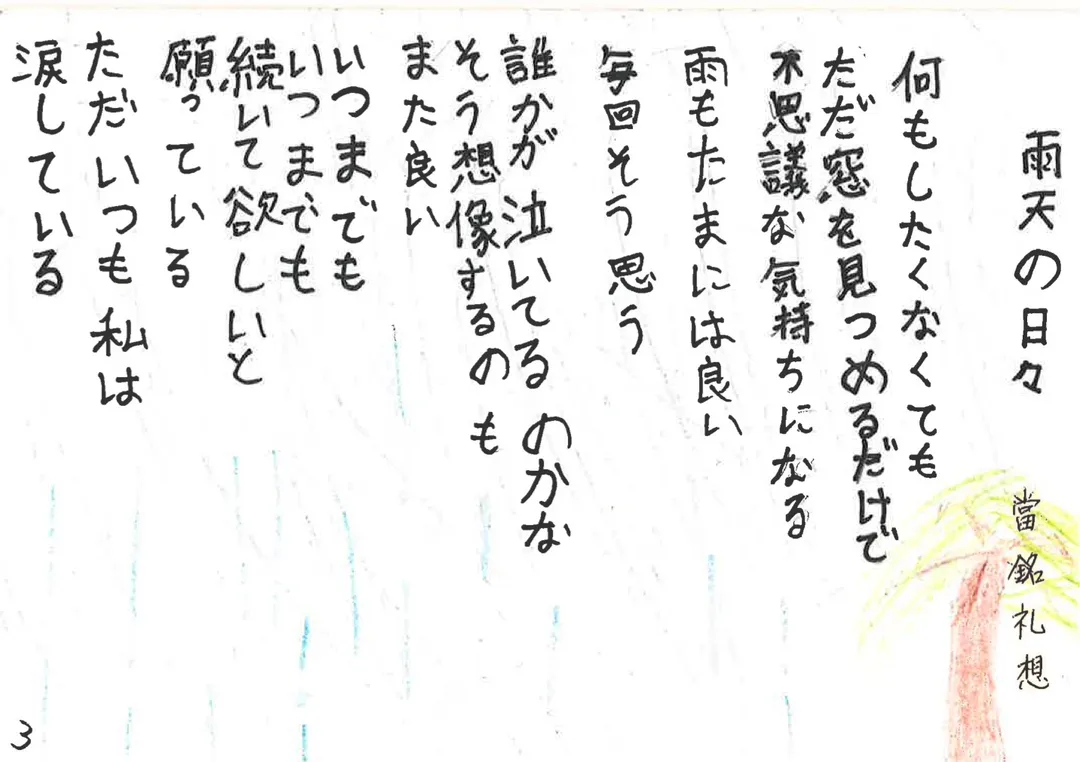 雨天の日々
當銘礼想
何もしたくなくても
ただ窓を見つめるだけで
不思議な気持ちになる
雨もたまには良い
毎回そう思う
誰かが泣いてるのかな
そう想像するのも
また良い
いつまでも
いつまでも
続いて欲しいと
願っている
ただいつも私は
涙している
3